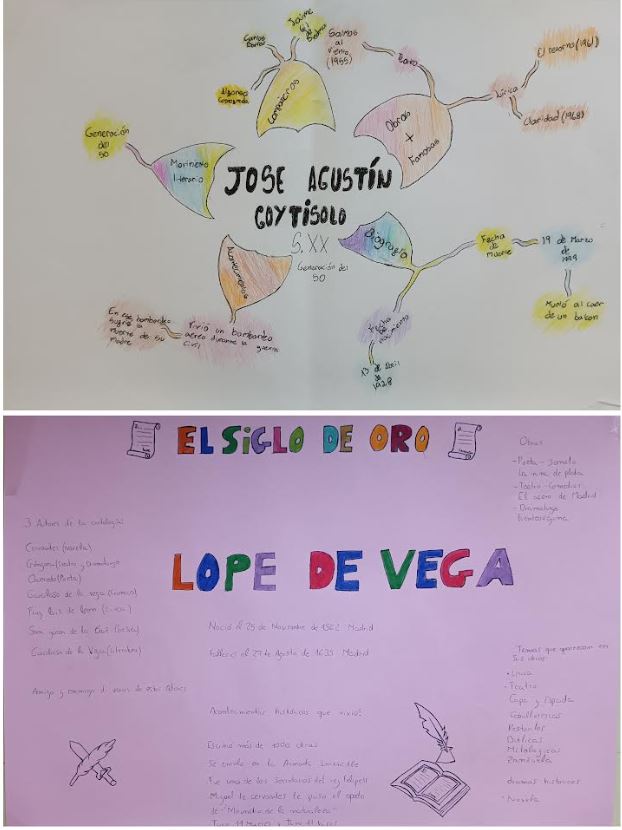 Jaime
Gil
de
Biedma
Carlos
Barral
Salmos
al
Viento
(1955)
El retorno (1961)
Poesía
Compañeros
Lírica
Obras
+
Famosas
Claridad (1968)
Generación
del
50
Movimiento
literario
JOSE AGUSTÍN
GOYTISOLO
S. XX
Generación del
50
Biografía
Fecha
de
muerte
19 de Marzo
de
Murió al caer
de un balcon
Fecha
de
nacimiento
13 de Abril
de
1928
Acontecimientos
En ese bombardeo
sufrió la
muerte de su
madre
Vivio un bombardeo
aéreo durante la guerra
civil
EL SiGLO DE ORO
Obras
-Poeta - Soneto
-Teatro - Comedias
El acero de Madrid
-Dramaturgo
Fuenteovejuna
3 Autores de la antología:
Cervantes (novela)
Góngora (Teatro y Dramaturgo
Quevedo (Poeta)
Garcilaso de la Vega
Fray Luis de leon
San Juan de la Cruz
Garcilaso de la Vega (Literatura)
LOPE DE VEGA
Nació el 25 de Noviembre de 1562 Madrid
Falleció el 27 de Agosto de 1635 Madrid
Amigo y enemigo de varios de estos
Acontecimientos históricos que vivió:
Escribió más de 1000 obras
Se enrola en la Armada Invencible
Fue uno de los secretarios del rey
Miguel de cervantes le puso el apodo
de "Monstruo de la naturaleza"
Temas que aparecen en
sus obras:
-Lírica
-Teatro
Capa y Espada
Pastoriles
Bíblicas
Mitológicas
dramas históricos
- Novela